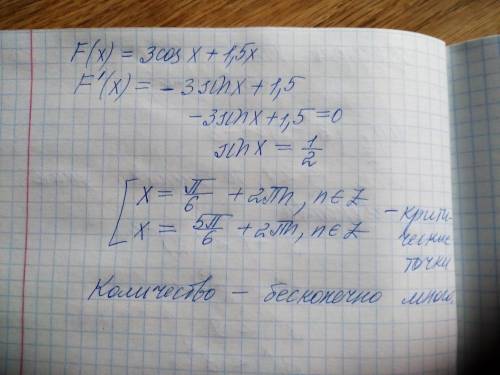 F(x) = 3cos x + 1,5x
F'(x) = -3sinx + 1,5
-3sinx + 1,5 = 0
sinx = 1/2
[ x = π/6 + 2πn, n∈Z
x = 5π/6 + 2πn, n∈Z
- крити-
ческие
точки
Количество - бесконечно много.